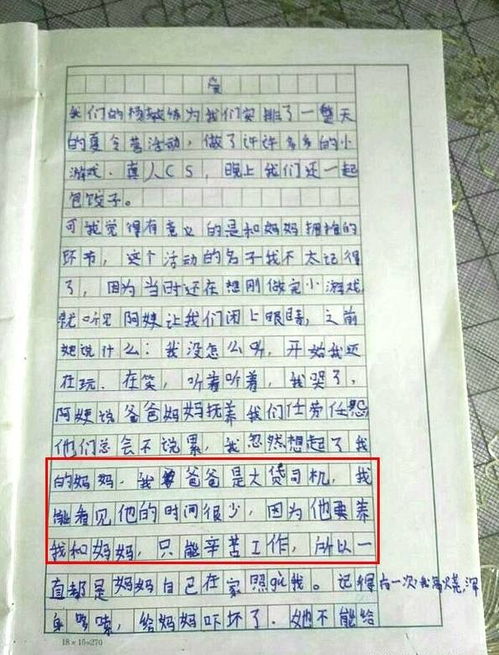 爱
我们的杨教练为我们安排了一整天
的夏令营活动，做了许许多多的小
游戏、真人CS，晚上我们还一起
包饺子。
可我觉得有意义的是和妈妈拥抱的
环节，这个活动的名子我不太记得
了，因为当时还在想刚做完小游戏
就听见阿姨让我们闭上眼睛，之前
她说什么：我没怎么听，开始我还
在玩、在笑，听着听着，我哭了，
阿姨说爸爸妈妈抚养我们任劳任怨
他们总会不说累，我忽然想起了我
的妈妈，我爸爸是大货司机，我
能看见他的时间很少，因为他要养
我和妈妈，只能辛苦工作，所以一
直都是妈妈自己在家照顾我。记得有一次我高烧，浑
身哆嗦，给妈妈吓坏了，她不能给
18×15=270